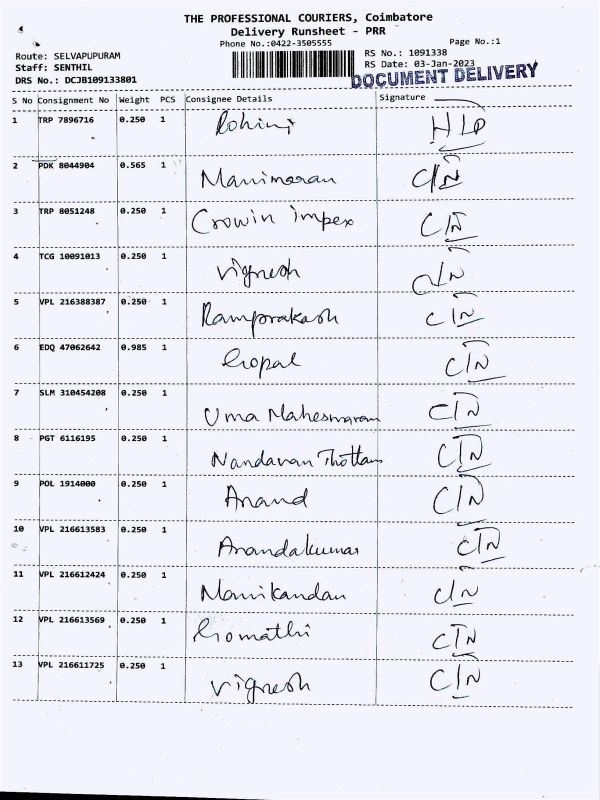 THE PROFESSIONAL COURIERS, Coimbatore
Delivery Runsheet - PRR
Phone No.:0422-3505555
Page No.:1
Route: SELVAPUPURAM
RS No.: 1091338
Staff: SENTHIL
RS Date: 03-Jan-2023
DRS No.: DCJB109133801
DOCUMENT DELIVERY
S No Consignment No Weight PCS Consignee Details Signature
1 TRP 7896716 0.250 1 Rohini H/D
2 PDK 8044904 0.565 1 Manimaran C/N
3 TRP 8051248 0.250 1 Crowin impex C/N
4 TCG 10091013 0.250 1 Vignesh C/N
5 VPL 216388387 0.250 1 Ramprakash C/N
6 EDQ 47062642 0.985 1 Gopal C/N
7 SLM 310454208 0.250 1 Uma Maheswaran C/N
8 PGT 6116195 0.250 1 Nandavan Thottam C/N
9 POL 1914000 0.250 1 Anand C/N
10 VPL 216613583 0.250 1 Anandakumar C/N
11 VPL 216612424 0.250 1 Manikandan C/N
12 VPL 216613569 0.250 1 Gomathi C/N
13 VPL 216611725 0.250 1 Vignesh C/N